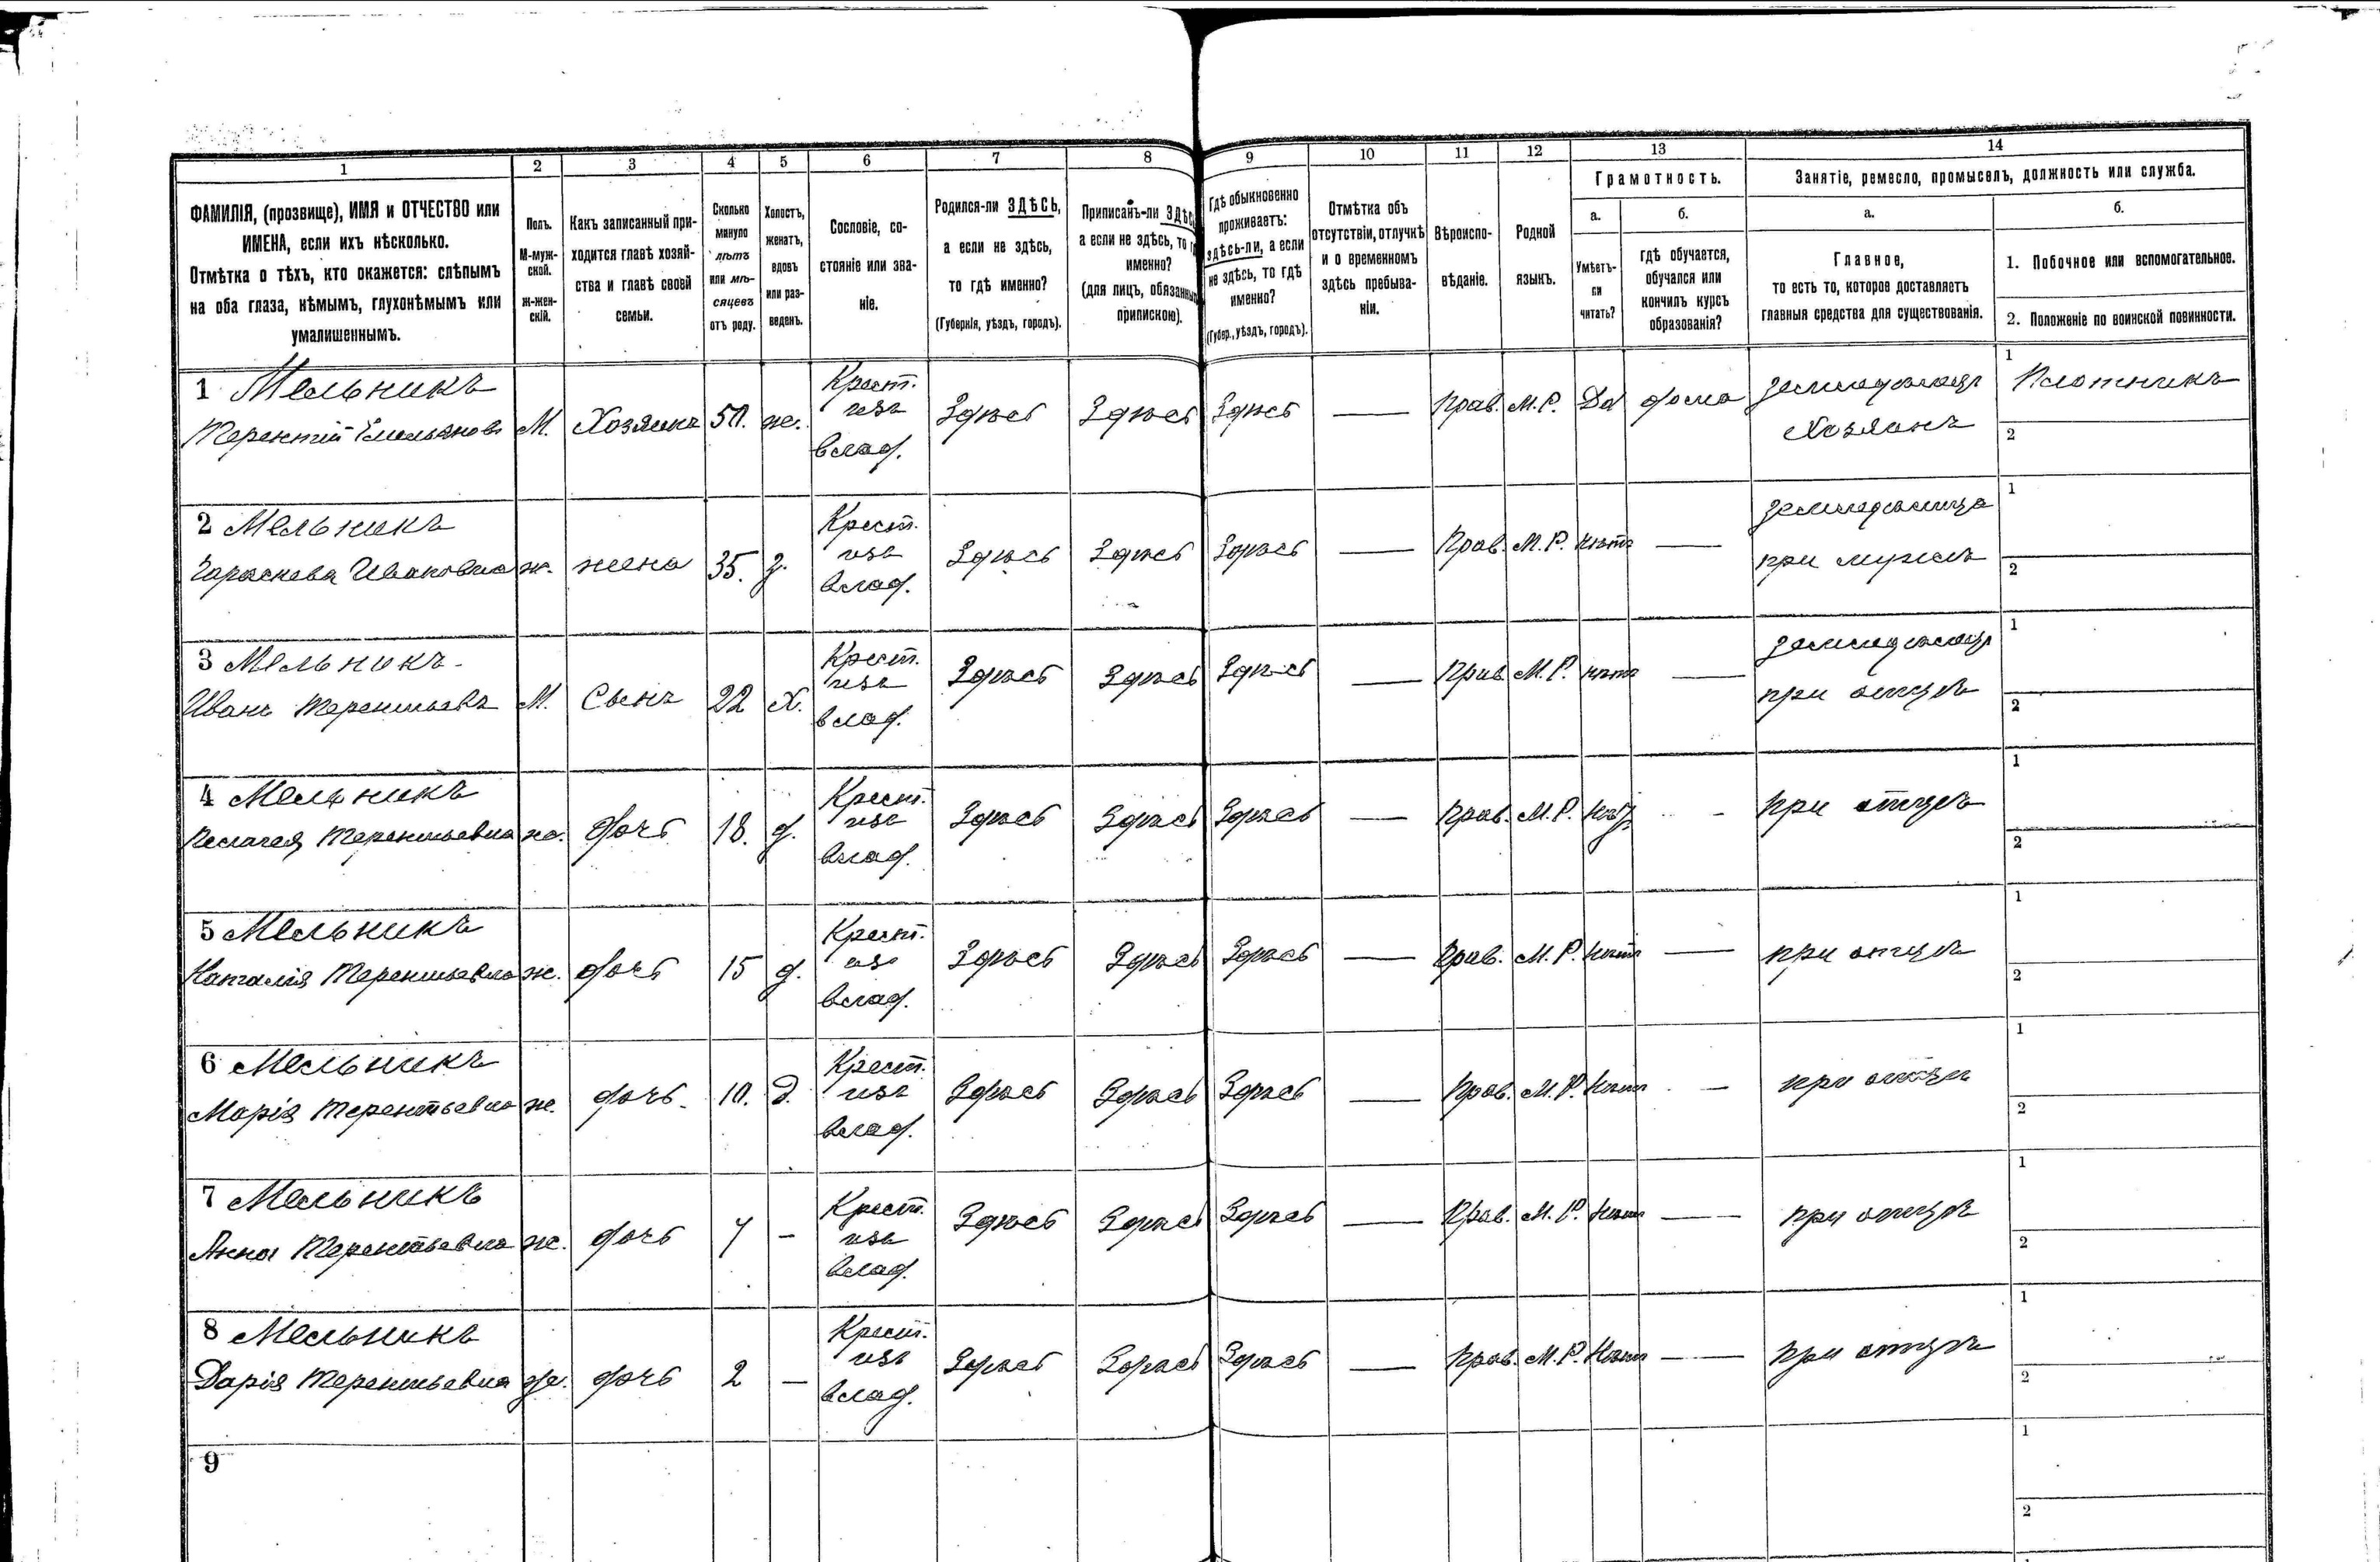 1 2 3 4 5 6 7 8 9 10 11 12 13 14
ФАМИЛІЯ, (прозвище), ИМЯ и ОТЧЕСТВО или
ИМЕНА, если ихъ нѣсколько.
Отмѣтка о тѣхъ, кто окажется: слѣпымъ
на оба глаза, нѣмымъ, глухонѣмымъ или
умалишеннымъ.
Полъ.
М-муж-
ской.
ж-жен-
скій.
Какъ записанный при-
ходится главѣ хозяй-
ства и главѣ своей
семьи.
Сколько
минуло
лѣтъ
или мѣ-
сяцевъ
отъ роду.
Холостъ,
женатъ,
вдовъ
или раз-
веденъ.
Сословіе, со-
стояніе или зва-
ніе.
Родился-ли ЗДѢСЬ,
а если не здѣсь,
то гдѣ именно?
(Губернія, уѣздъ, городъ).
Приписанъ-ли ЗДѢС
а если не здѣсь, то г
именно?
(для лицъ, обязанных
припискою).
Гдѣ обыкновенно
проживаетъ:
здѣсь-ли, а если
не здѣсь, то гдѣ
именно?
(Губер., уѣздъ, городъ).
Отмѣтка объ
отсутствіи, отлучкѣ
и о временномъ
здѣсь пребыва-
ніи.
Вѣроиспо-
вѣданіе.
Родной
языкъ.
Грамотность.
а.
Умѣетъ-
ли
читать?
б.
гдѣ обучается,
обучался или
кончилъ курсъ
образованія?
Занятіе, ремесло, промыселъ, должность или служба.
а.
Главное,
то есть то, которое доставляетъ
главныя средства для существованія.
б.
1. Побочное или вспомогательное.
2. Положеніе по воинской повинности.
1 Мельникъ Крест. земледѣлец 1 Плотникъ
Терентій Емельяновъ М. Хозяинъ 50. ж. изъ Здѣсь Здѣсь Здѣсь — Прав. М.Р. Да дома Хозяинъ
влад. 2
2 Мельникъ Крест. земледѣлица 1
Параскева Ивановна ж. жена 35. з. изъ Здѣсь Здѣсь Здѣсь — Прав. М.Р. нѣтъ — при мужѣ
влад. 2
3 Мельникъ Крест. земледѣлец 1
Иванъ Терентьевъ М. Сынъ 22 Х. изъ Здѣсь Здѣсь Здѣсь — Прав. М.Р. нѣтъ — при отцѣ
влад. 2
4 Мельникъ Крест. 1
Пелагея Терентьевна ж. дочь 18. д. изъ Здѣсь Здѣсь Здѣсь — Прав. М.Р. нѣт - при отцѣ
влад. 2
5 Мельникъ Крест. 1
Наталія Терентьевна ж. дочь 15 д. изъ Здѣсь Здѣсь Здѣсь — Прав. М.Р. нѣтъ — при отцѣ
влад. 2
6 Мельникъ Крест. 1
Марія Терентьевна ж. дочь 10. д. изъ Здѣсь Здѣсь Здѣсь — Прав. М.Р. нѣтъ — при отцѣ
влад. 2
7 Мельникъ Крест. 1
Анна Терентьевна ж. дочь 7 — изъ Здѣсь Здѣсь Здѣсь — Прав. М.Р. нѣтъ — при отцѣ
влад. 2
8 Мельникъ Крест. 1
Дарія Терентьевна ж. дочь 2 — изъ Здѣсь Здѣсь Здѣсь — Прав. М.Р. нѣтъ — при отцѣ
влад. 2
9 1
2